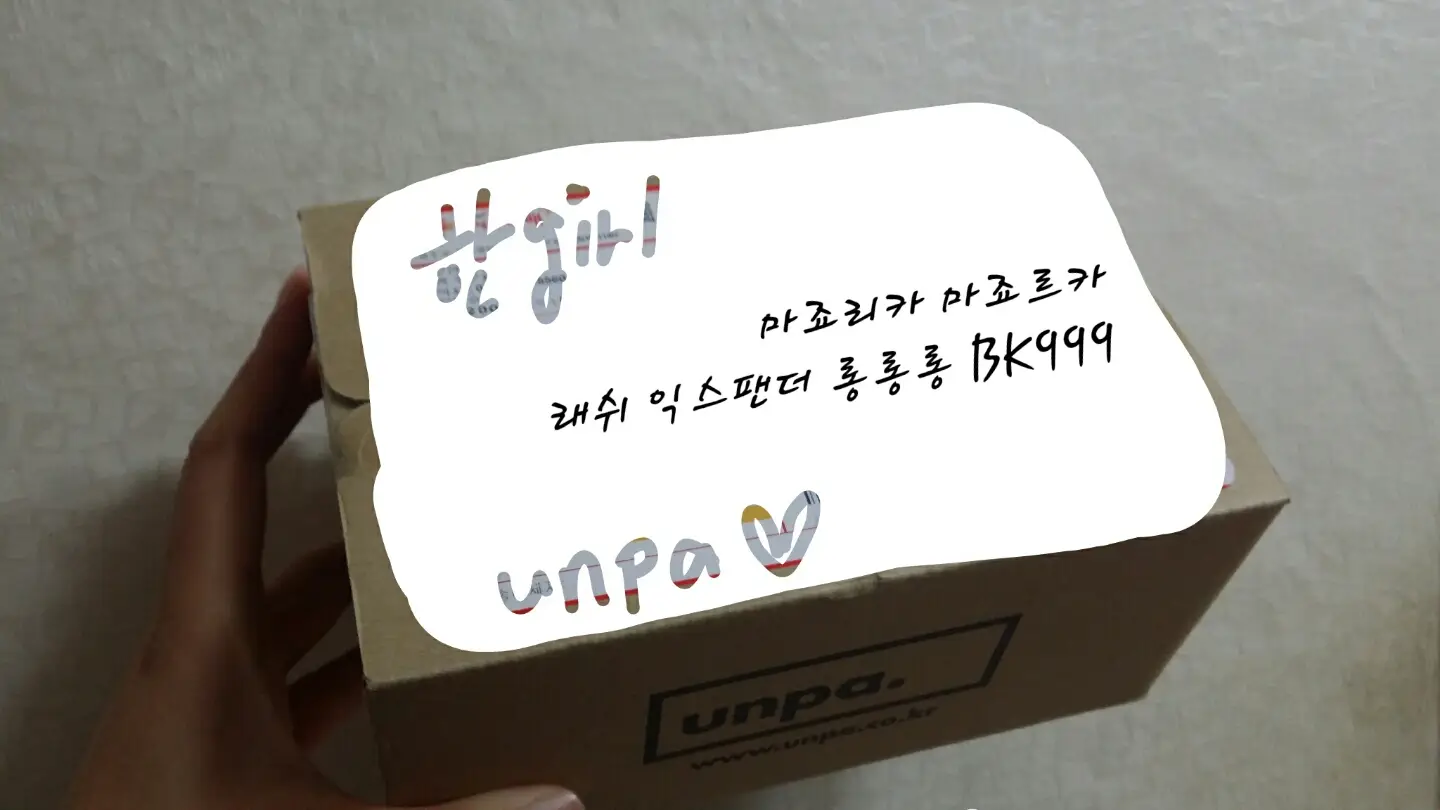 한girl
마죠리카 마죠르카
래쉬 익스팬더 롱롱롱 BK999
unpa
unpa.
www.unpa.co.kr